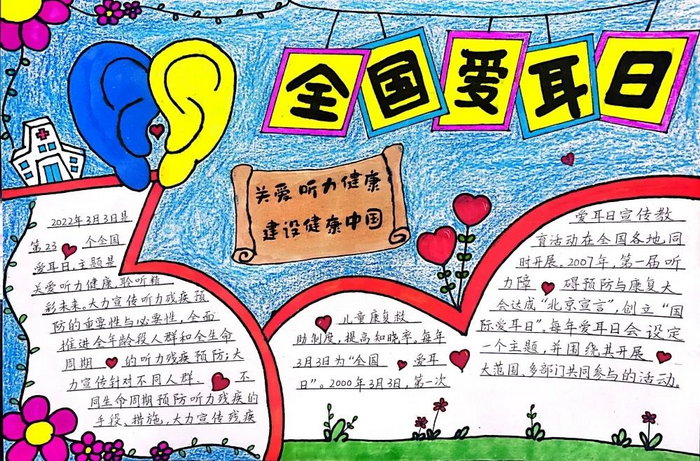 全国爱耳日
关爱听力健康
建设健康中国
2022年3月3日是
第23个全国
爱耳日,主题是
关爱听力健康,聆听精
彩未来。大力宣传听力残疾预
防的重要性与必要性,全面
推进全年龄段人群和全生命
周期的听力残疾预防;大
力宣传针对不同人群、不
同生命周期预防听力残疾的
手段、措施,大力宣传残疾
儿童康复救
助制度,提高知晓率。每年
3月3日为“全国爱耳
日”。2000年3月3日,第一次
爱耳日宣传教
育活动在全国各地,同
时开展。2007年,第一届听
力障碍预防与康复大
会达成“北京宣言”,创立“国
际爱耳日”。每年爱耳日会设定
一个主题,并围绕其开展
大范围、多部门共同参与的活动。